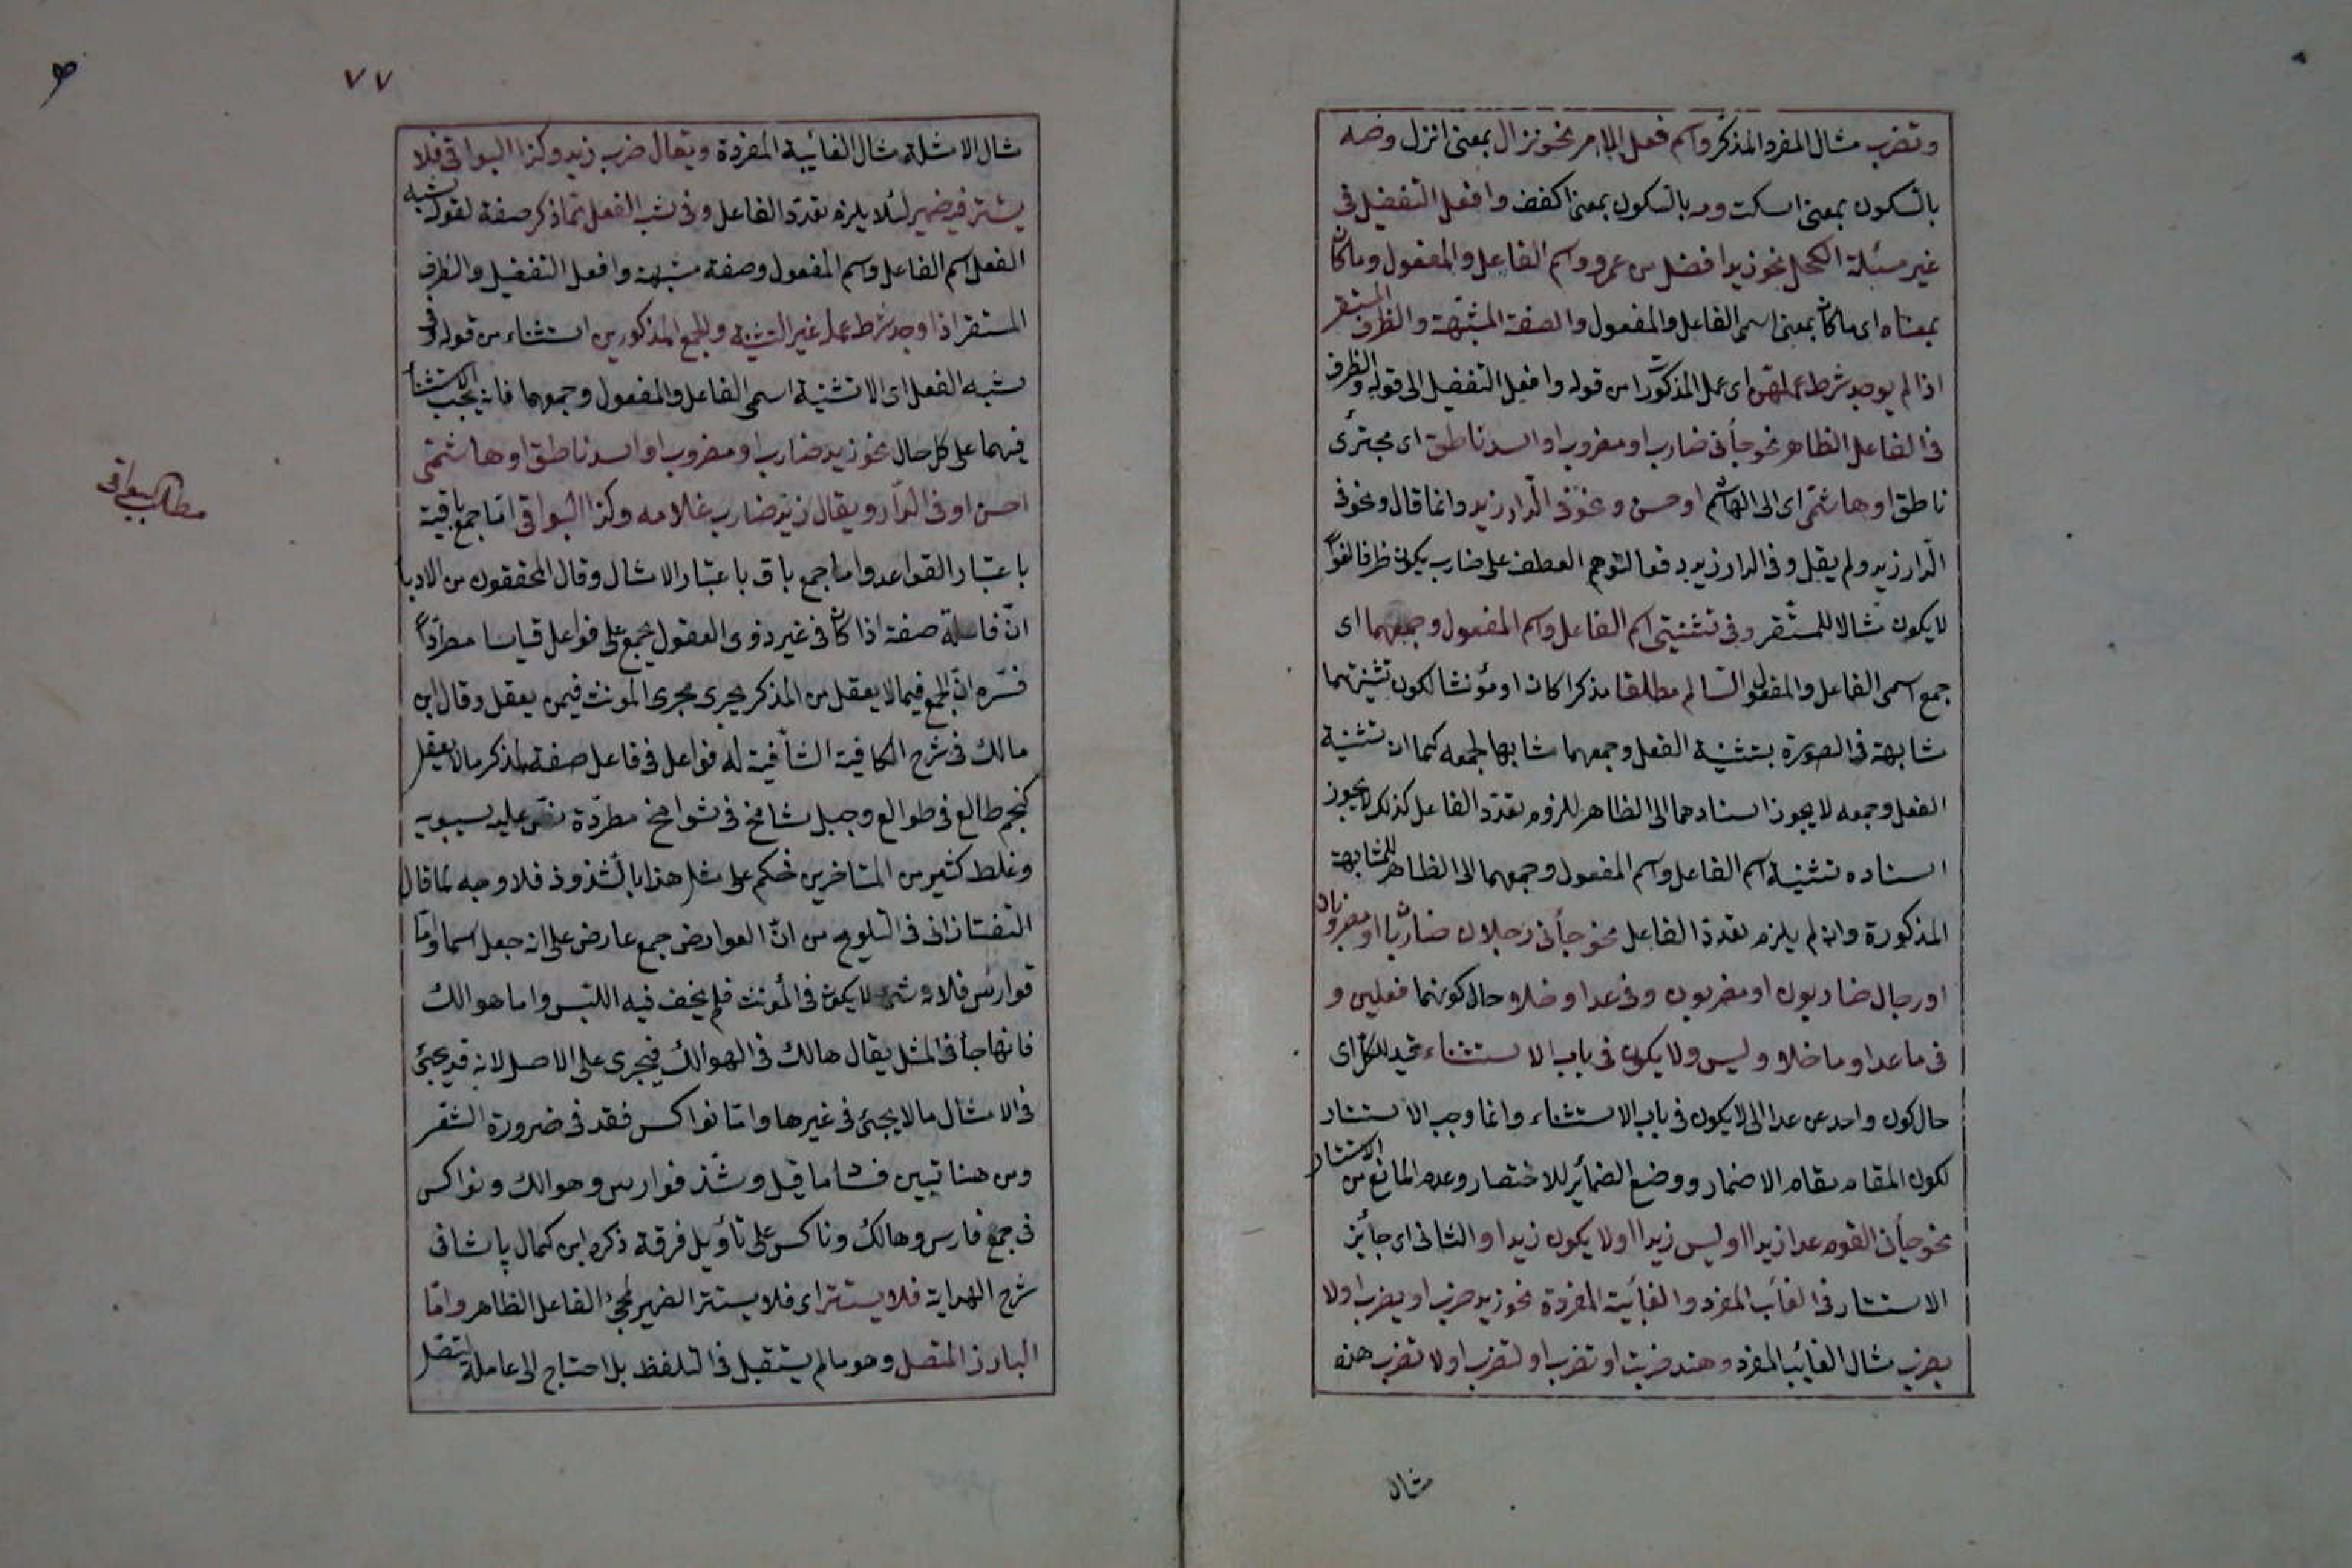 وتضرب مثال المفرد المذكر واسم فعل الامر نحو نزال بمعنى انزل وصه
بالسكون بمعنى اسكت ومه بالسكون بمعنى اكفف وافعل التفضيل فى
غير مسئلة الكحل نحو زيد افضل من عمرو واسم الفاعل والمفعول وما كان
بمعناه اى ما كان بمعنى اسمى الفاعل والمفعول والصفة المشبهة والظرف المستقر
اذا لم يوجد شرط عملهن اى عمل المذكورات من قوله وافعل التفضيل الى قوله والظرف
فى الفاعل الظاهر نحو جاءنى ضارب او مضروب او اسد ناطق اى مجترئ
ناطق او هاشمى اى الى الهاشم او حسن ونحو فى الدار زيد وانما قال ونحو فى
الدار زيد ولم يقل وفى الدار زيد دفعا لتوهم العطف على ضارب يكون ظرفا لغوا
لا يكون مثالا للمستقر وفى تثنيتى اسم الفاعل واسم المفعول وجمعهما اى
جمع اسمى الفاعل والمفعول السالم مطلقا مذكرا كان او مؤنثا لكون تثنيتهما
مشابهة فى الصورة بتثنية الفعل وجمعهما مشابها لجمعه كما ان تثنية
الفعل وجمعه لا يجوز اسنادهما الى الظاهر للزوم تعدد الفاعل كذلك لا يجوز
اسناده تثنية اسم الفاعل واسم المفعول وجمعهما الى الظاهر للمشابهة
المذكورة وان لم يلزم تعدد الفاعل نحو جاءنى رجلان ضاربان او مضروبان
او رجال ضاربون او مضربون وفى عدا وخلا حال كونهما فعلين و
فى ما عدا وما خلا وليس ولا يكون فى باب الاستثناء قيد للكل اى
حال كون واحد من عدا الى لا يكون فى باب الاستثناء وانما وجب الاستتار
لكون المقام مقام الاضمار ووضع الضمائر للاختصار وعدم المانع من الاستتار
نحو جاءنى القوم عدا زيدا او ليس زيدا او لا يكون زيدا والثانى اى جائز
الاستتار فى الغائب المفرد والغائبة المفردة نحو زيد ضرب او يضرب او لا
يضرب مثال الغائب المفرد وهند ضربت او تضرب او لتضرب او لا تضرب هذه
مثال
٧٧
مثال الامثلة مثال الغائبة المفردة ويقال ضرب زيد وكذا البواقى فلا
يستتر فيه ضمير لئلا يلزم تعدد الفاعل وفى شبه الفعل مما ذكر صفة لقوله شبه
الفعل اسم الفاعل واسم المفعول وصفة مشبهة وافعل التفضيل والظرف
المستقر اذا وجد شرط عمله غير التثنية والجمع المذكورين استثناء من قوله وفى
شبه الفعل اى الا تثنية اسمى الفاعل والمفعول وجمعهما فانه يجب الاستتار
فيهما على كل حال نحو زيد ضارب او مضروب او اسد ناطق او هاشمى
احسن او فى الدار ويقال زيد ضارب غلامه وكذا البواقى اما جمع باقية
باعتبار القواعد واما جمع باق باعتبار الامثال وقال المحققون من الادبا
ان فاعلة صفة اذا كان فى غير ذوى العقول يجمع على فواعل قياسا مطردا
فسره ان الجمع فيما لا يعقل من المذكر يجرى مجرى المونث فيمن يعقل وقال ابن
مالك فى شرح الكافية الشافية له فواعل فى فاعل صفة لمذكر ما لا يعقل
كنجم طالع فى طوالع وجبل شامخ فى شوامخ مطردة نص عليه سيبويه
وغلط كثير من المتاخرين فحكم على مثل هذا بالشذوذ فلا وجه لما قال
التفتازانى فى التلويح من ان العوارض جمع عارض على انه جعل اسما واما
فوارس فلانه شئ لا يكون فى المؤنث فلم يخف فيه اللبس واما هوالك
فانها جاء فى المثل يقال هالك فى الهوالك فيجرى على الاصل لانه قد يجئ
فى الامثال ما لا يجئ فى غيرها واما نواكس فقد فى ضرورة الشعر
ومن هنا تبين فساد ما قيل وشذ فوارس وهوالك ونواكس
فى جمع فارس وهالك وناكس على تأويل فرقة ذكره ابن كمال پاشا فى
شرح الهداية فلا يستتر اى فلا يستتر الضمير لمجئ الفاعل الظاهر واما
البارز المتصل وهو ما لم يستقل فى التلفظ بل احتاج الى عامله ليتصل